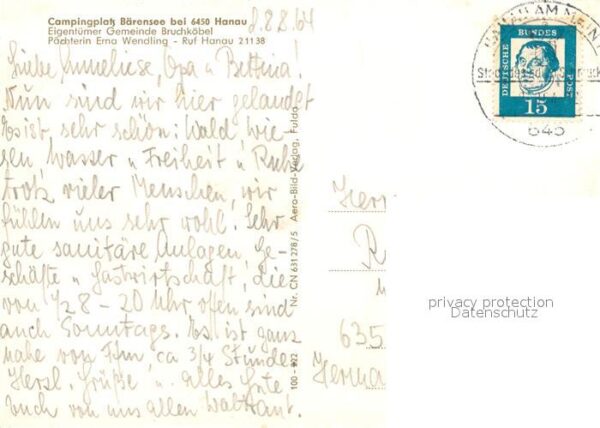 Campingplatz Bärensee bei 6450 Hanau
Eigentümer Gemeinde Bruchköbel
Pächterin Erna Wendling - Ruf Hanau 21138
8.8.64
Liebe Anneliese, Opa u Bettina!
Nun sind wir hier gelandet
Es ist sehr schön: Wald Wie-
sen, Wasser u Freiheit u Ruhe
trotz vieler Menschen, wir
fühlen uns sehr wohl. Sehr
gute sanitäre Anlagen, Ge-
schäfte u Gastwirtschaft, die
von 1/2 8 - 20 Uhr offen sind
auch Sonntags. Es ist ganz
nahe von Ffm, ca 3/4 Stunde
Herzl. Grüße u. alles Gute
Euch von uns allen Waltraut.
100 - 922 Nr. CN 631278/5 Aero-Bild-Verlag, Fulda
DEUTSCHE BUNDESPOST
15
645
Herr
R
635
Herma
privacy protection
Datenschutz